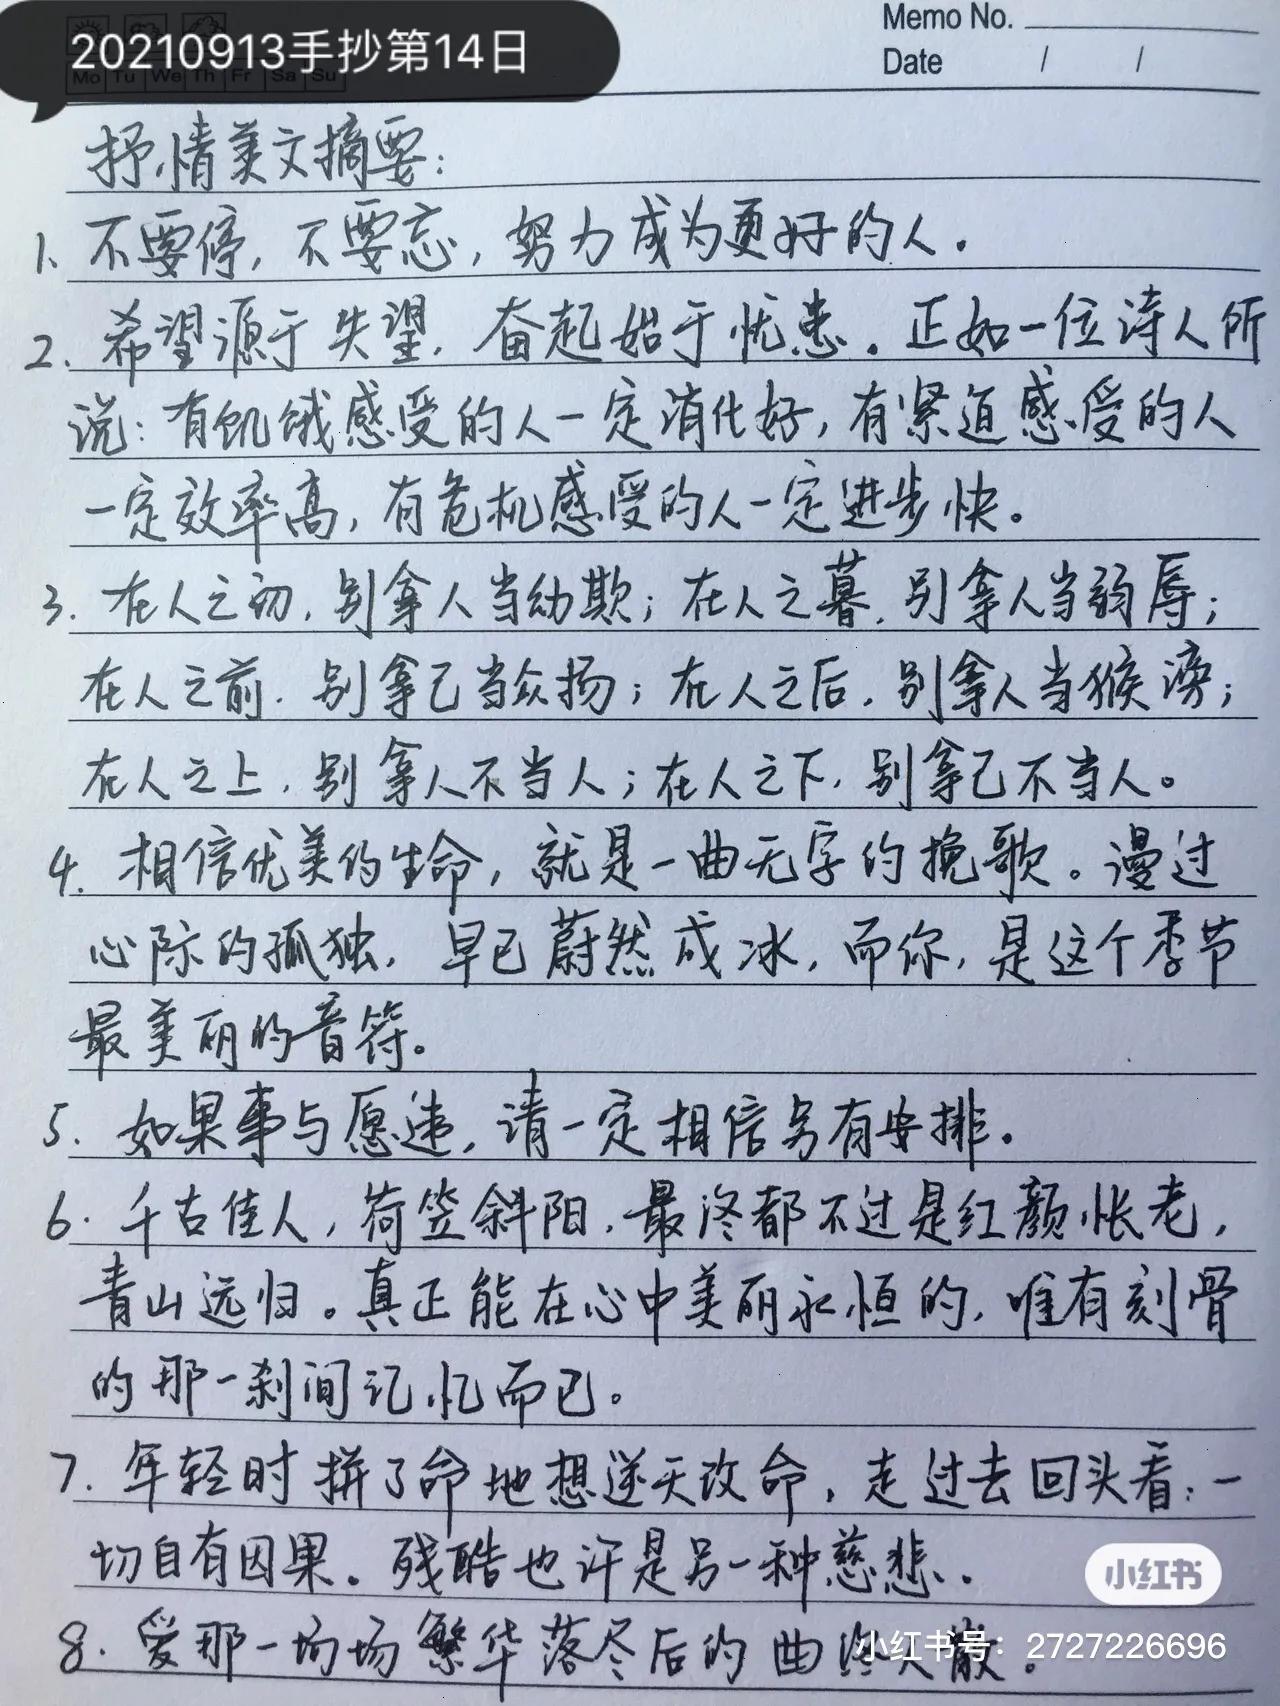 Memo No.
20210913手抄第14日
Date / /
Mo Tu We Th Fr Sa Su
抒情美文摘要:
1、不要停,不要忘,努力成为更好的人。
2.希望源于失望,奋起始于忧患。正如一位诗人所
说:有饥饿感受的人一定消化好,有紧迫感受的人
一定效率高,有危机感受的人一定进步快。
3.在人之初,别拿人当幼欺;在人之暮,别拿人当弱辱;
在人之前,别拿己当众扬;在人之后,别拿人当猴滂;
在人之上,别拿人不当人;在人之下,别拿己不当人。
4.相信优美的生命,就是一曲无字的挽歌。漫过
心际的孤独,早已蔚然成冰,而你,是这个季节
最美丽的音符。
5.如果事与愿违,请一定相信另有安排。
6.千古佳人,荷笠斜阳,最终都不过是红颜怅老,
青山远归。真正能在心中美丽永恒的,唯有刻骨
的那一刹间记忆而已。
7.年轻时拼了命地想逆天改命,走过去回头看:一
切自有因果。残酷也许是另一种慈悲。
小红书
8.爱那一场场繁华落尽后的曲终人散。
小红书号:2727226696